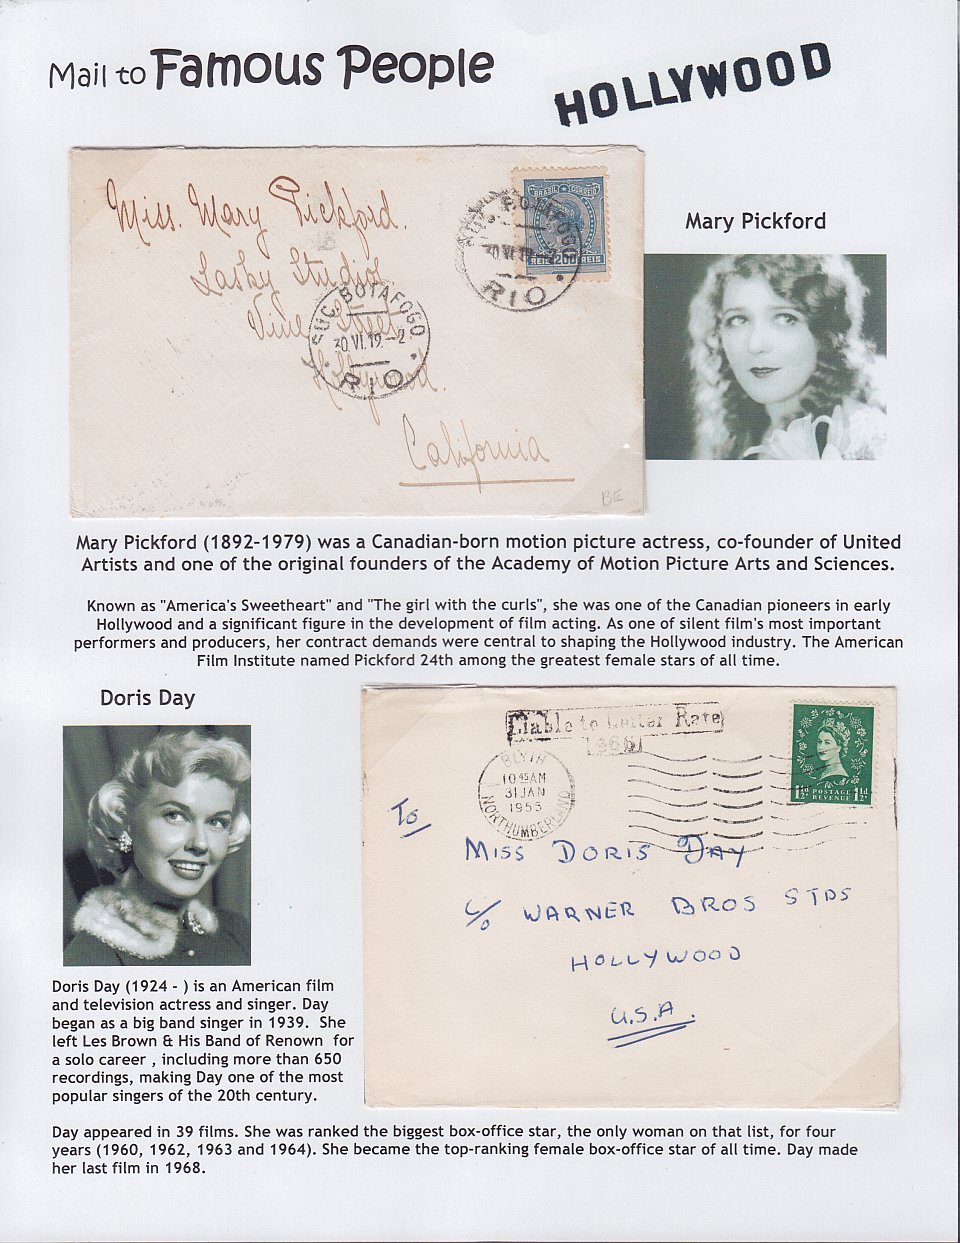 Mail to Famous People
HOLLYWOOD
Miss. Mary Pickford.
Lasky Studios
Vine Street
Hollywood.
California
BRASIL CORREIO
REIS 200 REIS
SUC. BOTAFOGO
RIO
SUC. BOTAFOGO
30 VI.19.-2
RIO
BE
Mary Pickford
Mary Pickford (1892-1979) was a Canadian-born motion picture actress, co-founder of United
Artists and one of the original founders of the Academy of Motion Picture Arts and Sciences.
Known as "America's Sweetheart" and "The girl with the curls", she was one of the Canadian pioneers in early
Hollywood and a significant figure in the development of film acting. As one of silent film's most important
performers and producers, her contract demands were central to shaping the Hollywood industry. The American
Film Institute named Pickford 24th among the greatest female stars of all time.
Doris Day
Liable to Letter Rate
BLYTH
10 45 AM
31 JAN
1955
NORTHUMBERLAND
1½d POSTAGE 1½d
REVENUE
To
MISS DORIS DAY
c/o WARNER BROS STDS
HOLLYWOOD
U.S.A.
Doris Day (1924 - ) is an American film
and television actress and singer. Day
began as a big band singer in 1939. She
left Les Brown & His Band of Renown for
a solo career , including more than 650
recordings, making Day one of the most
popular singers of the 20th century.
Day appeared in 39 films. She was ranked the biggest box-office star, the only woman on that list, for four
years (1960, 1962, 1963 and 1964). She became the top-ranking female box-office star of all time. Day made
her last film in 1968.